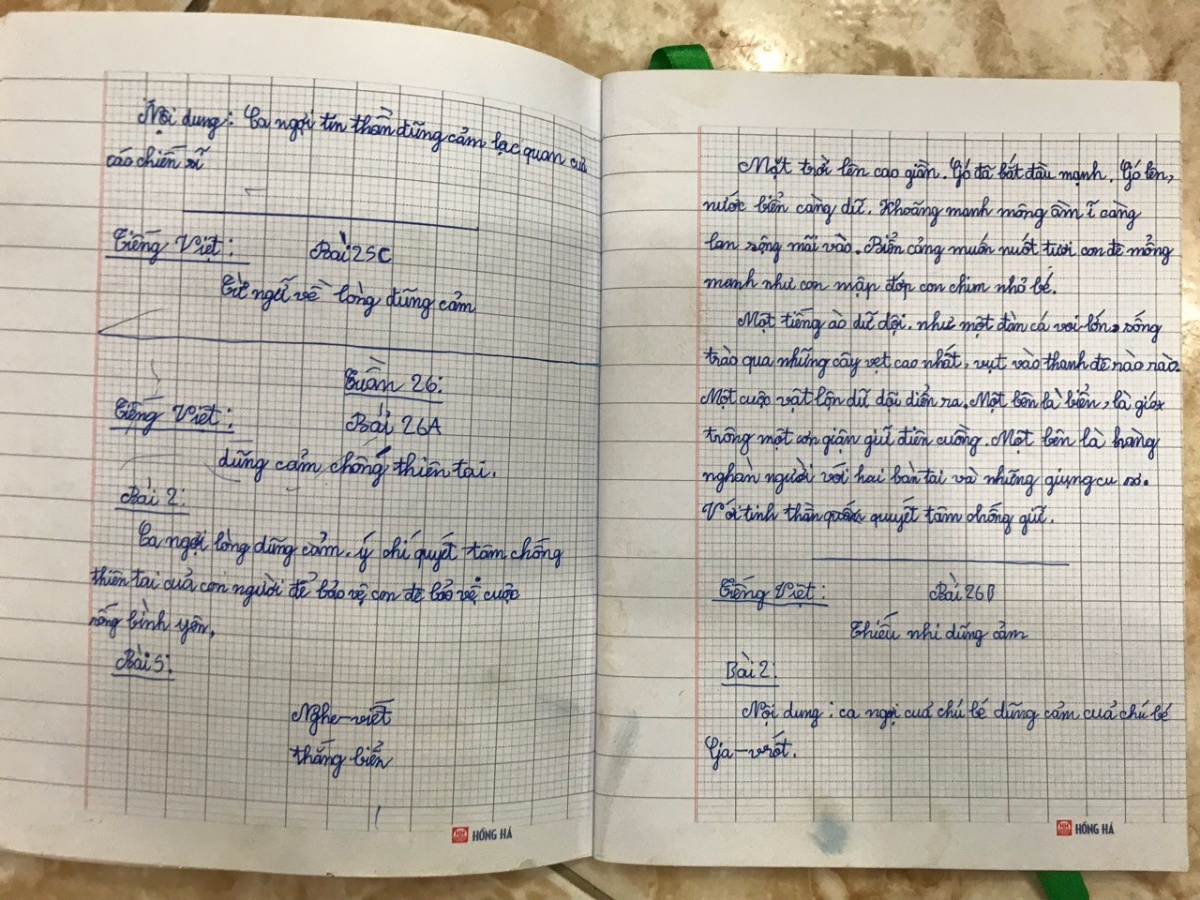 Nội dung: Ca ngợi tin thần dũng cảm lạc quan của
cáo chiến sĩ
Tiếng Việt: Bài 25C
Từ ngữ về lòng dũng cảm
Tuần 26:
Tiếng Việt: Bài 26A
dũng cảm chống thiên tai.
Bài 2:
Ca ngợi lòng dũng cảm, ý chí quyết tâm chống
thiên tai cuả con người để bảo vệ con đê bảo vệ cuộc
sống bình yên.
Bài 5:
Nghe-viết
thắng biển
HỒNG HÀ
Mặt trời lên cao giần. Gó đã bắt đầu mạnh. Gó lên,
nước biển càng dữ. Khoãng mạnh mông ầm ĩ càng
lan rộng mãi vào. Biển cảng muốn nuốt tươi con đê mỏng
manh như con mập đớp con chim nhỏ bé.
Một tiếng ào dữ dội. như một đàn cá voi lớn, sống
trào qua những cây vẹt cao nhất, vụt vào thanh đê rào rào.
Một cuộc vật lộn dữ dội diển ra. Một bên là biển, là gió
trông một cơn giận giữ điên cuồng. Một bên là hàng
nghàn người với hai bàn tai và những giụng cu sơ.
Với tinh thần quyết tâm chống giữ.
Tiếng Việt: Bài 26B
Thiếu nhi dũng cảm
Bài 2:
Nội dung: ca ngợi cuả chú bé dũng cảm cuả chú bé
Ga-vrốt.
HỒNG HÀ